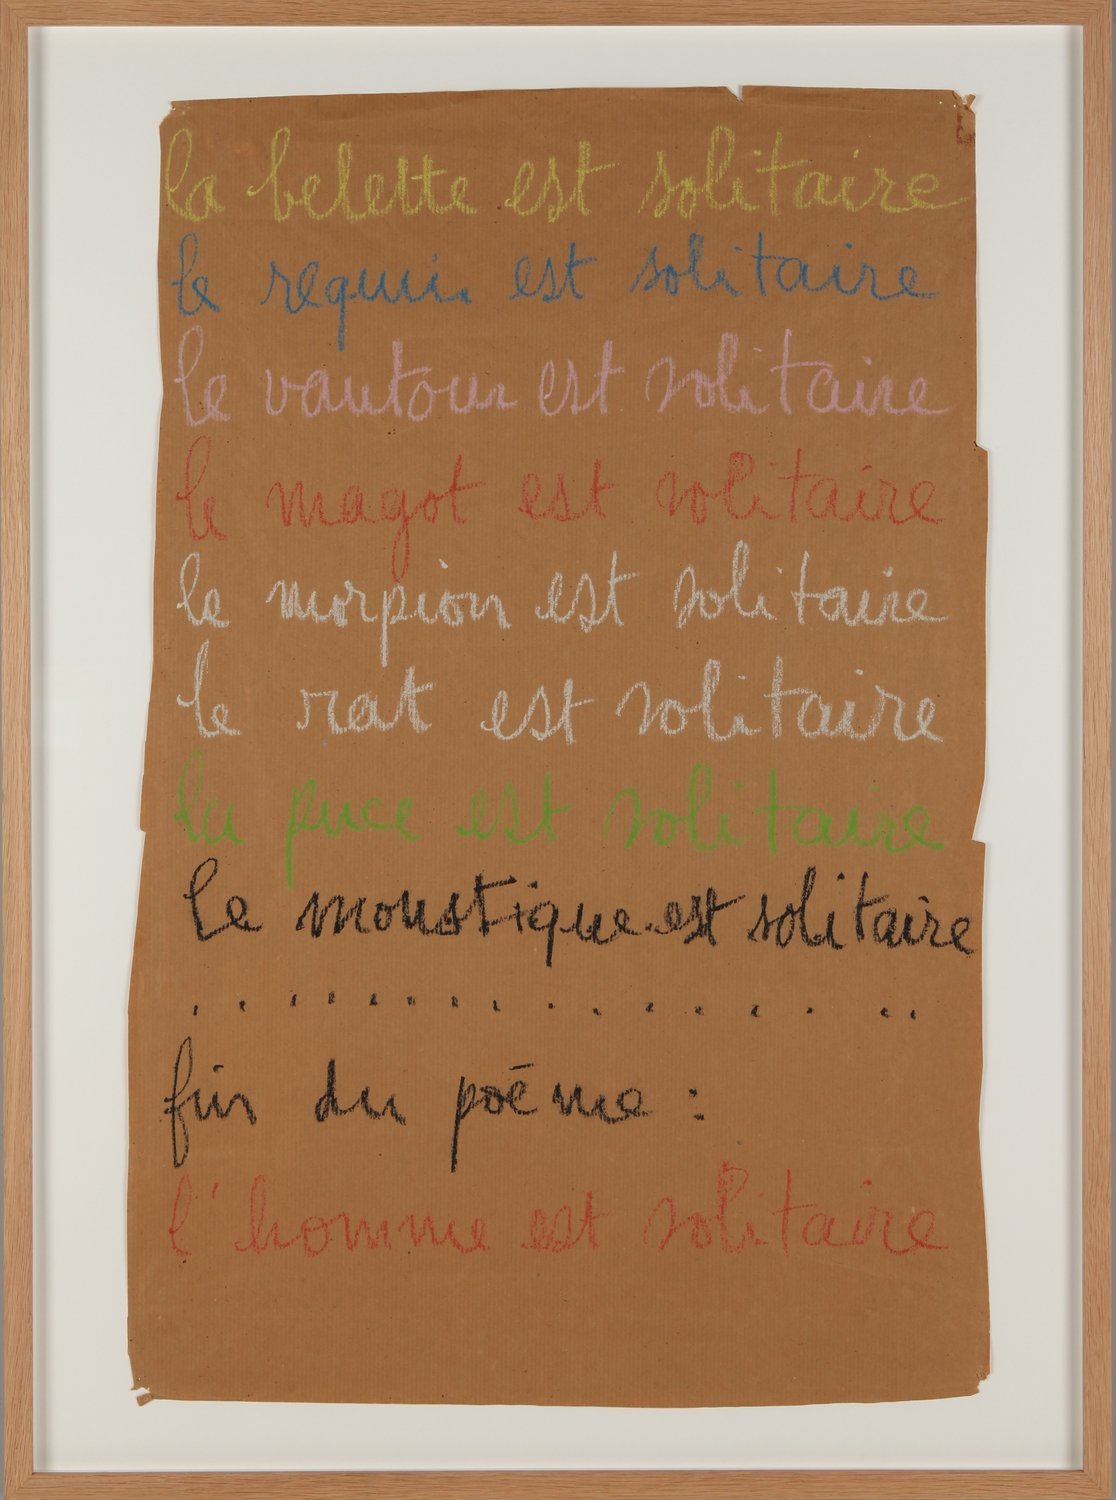 la belette est solitaire
le requin est solitaire
le vautour est solitaire
le magot est solitaire
le morpion est solitaire
le rat est solitaire
la puce est solitaire
le moustique est solitaire
. . . . . . . . . . . . . . . .
fin du poème :
l'homme est solitaire